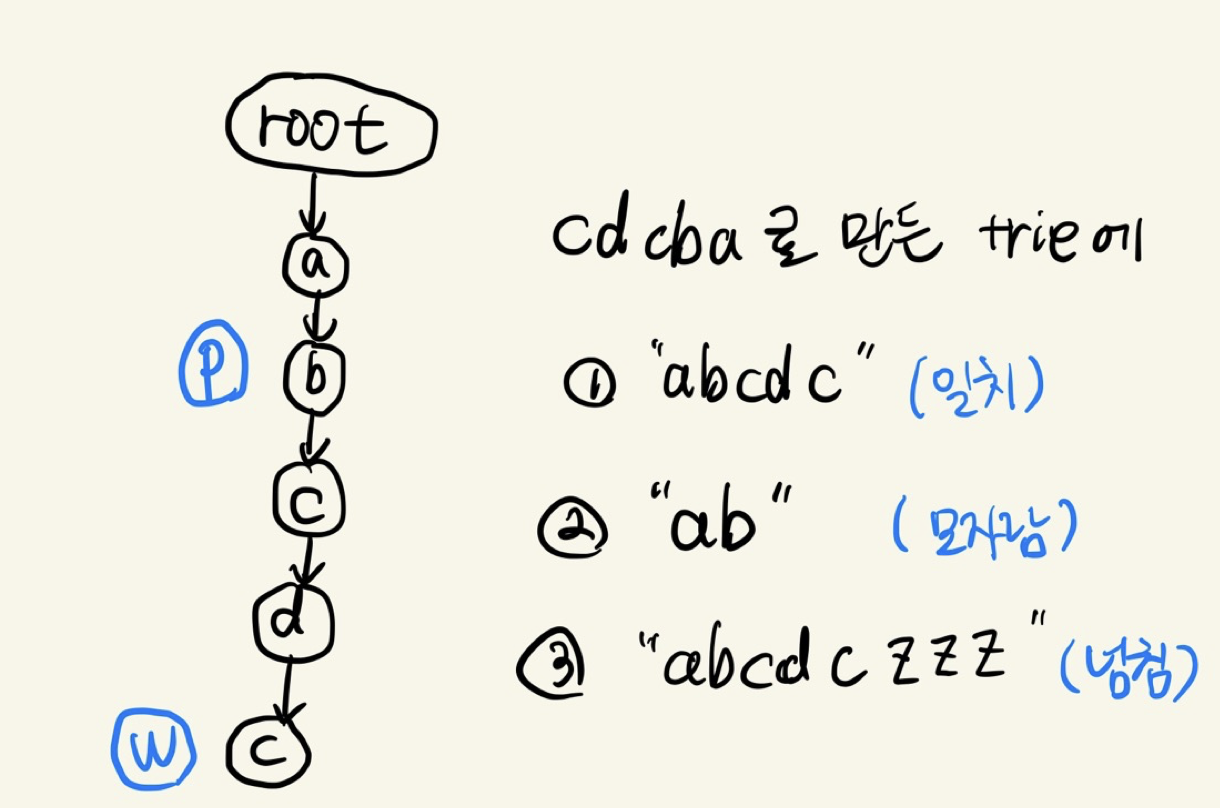 root
a
P
b
c
d
W
c
cdcba로 만든 trie에
① "abcdc" (일치)
② "ab" (모자람)
③ "abcdczzz" (넘침)